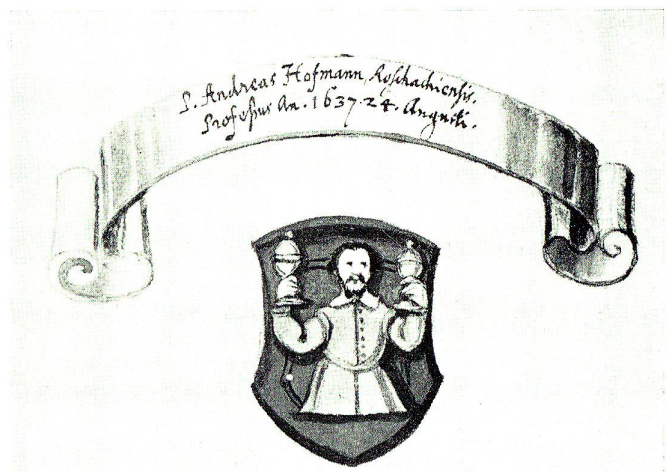 P. Andreas Hofmann, Roschachiensis.
Professus An. 1637. 24. Augusti.